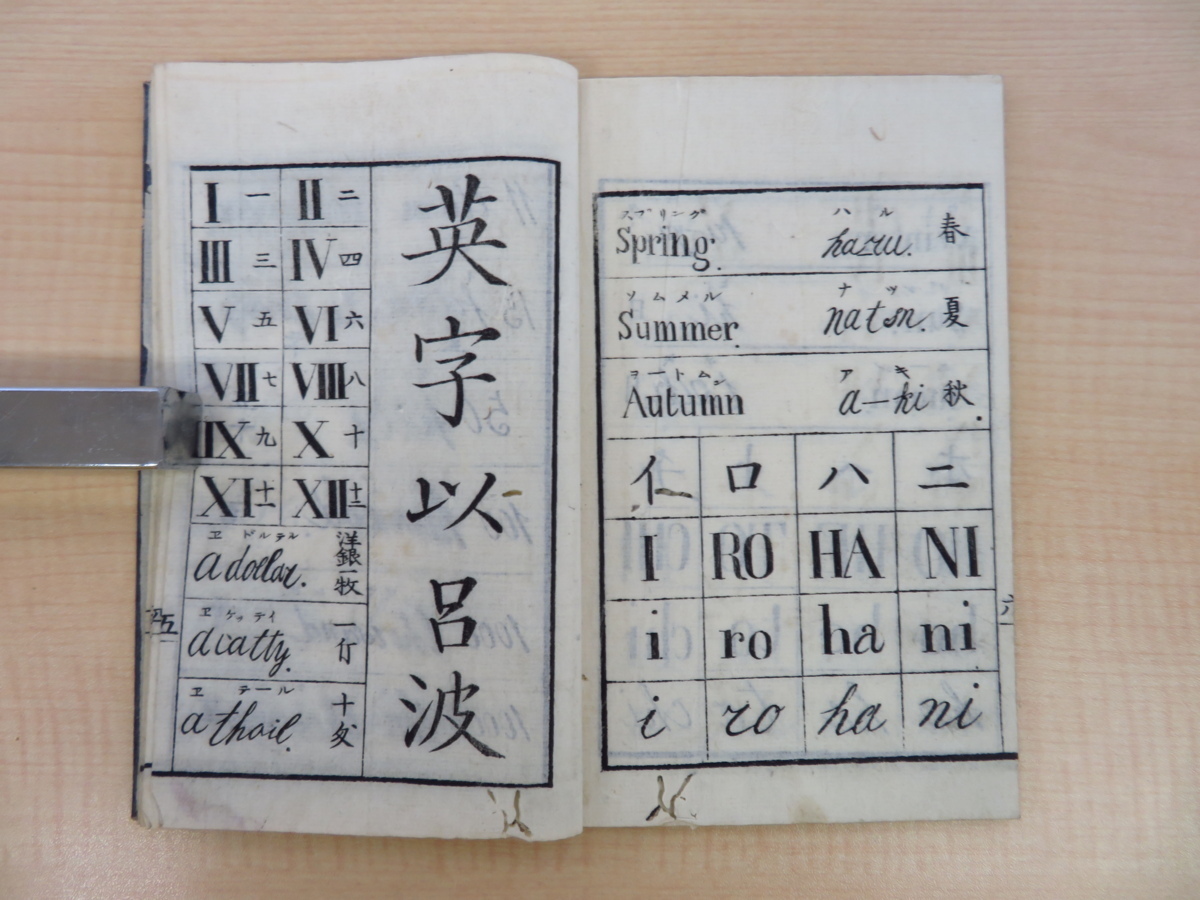 I 一 II 二
III 三 IV 四
V 五 VI 六
VII 七 VIII 八
IX 九 X 十
XI 十一 XII 十二
ヱ ドルラル
a dollar. 洋銀一枚
ヱ ケッテイ
a catty. 一斤
ヱ テール
a thail. 十匁
英字以呂波
五
スプリング ハル
Spring. haru. 春
ソムメル ナツ
Summer. natsu. 夏
ヲートムン アキ
Autumn a-ki 秋
イ ロ ハ ニ
I RO HA NI
i ro ha ni
i ro ha ni
六